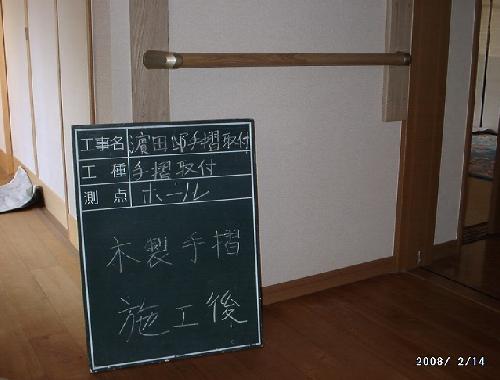 工事名 濱田邸手摺取付
工種 手摺取付
測点 ホール
木製手摺
施工後
2008/ 2/14